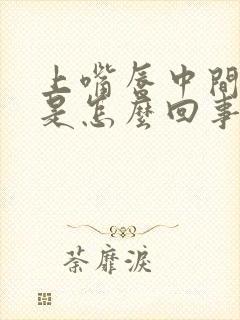 上嘴唇中間
是怎麼回事
荼靡淚